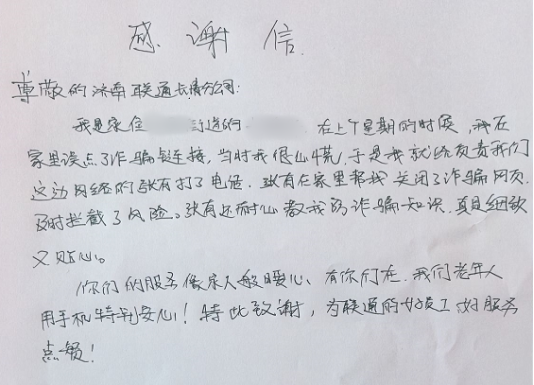 感谢信
尊敬的济南联通长清分公司:
我是家住 街道的 在上个星期的时候,我在
家里误点了诈骗链接,当时我很心慌,于是我就给负责我们
这边网络的张有打了电话.张有在家里帮我关闭了诈骗网页,
及时拦截了风险。张有还耐心教我防诈骗知识.真是细致
又贴心。
你们的服务像家人般暖心、有你们在.我们老年人
用手机特别安心!特此致谢,为联通的好员工好服务
点赞!